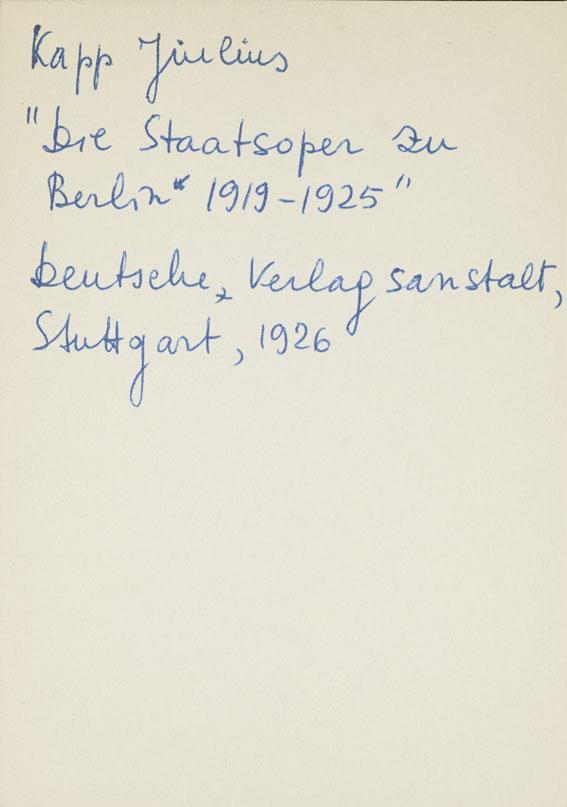 Kapp Julius
"Die Staatsoper zu
Berlin" 1919-1925"
Deutsche, Verlagsanstalt,
Stuttgart, 1926